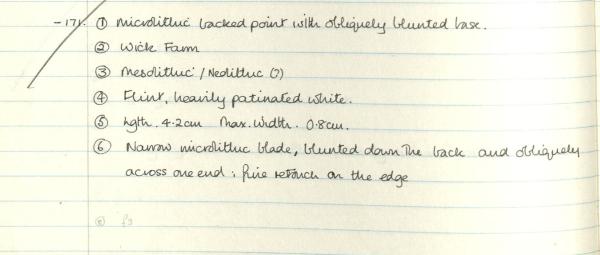 -171. ① Microlithic backed point with obliquely blunted base.
② Wick Farm
③ Mesolithic / Neolithic (?)
④ Flint, heavily patinated white.
⑤ lgth. 4.2cm Max. width. 0.8cm.
⑥ Narrow microlithic blade, blunted down the back and obliquely
across one end; fine retouch on the edge
⑧